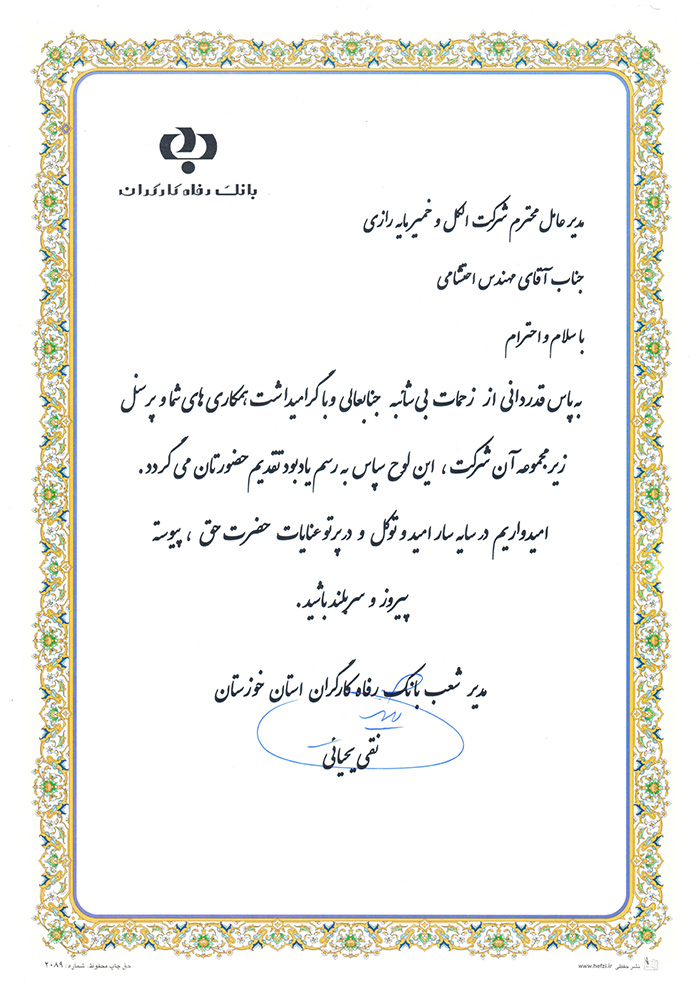 بانک رفاه کارگران
مدیر عامل محترم شرکت الکل و خمیرمایه رازی
جناب آقای مهندس احتشامی
با سلام و احترام
به پاس قدردانی از زحمات بی شائبه جنابعالی و با گرامیداشت همکاری های شما و پرسنل
زیرمجموعه آن شرکت ، این لوح سپاس به رسم یادبود تقدیم حضورتان می گردد .
امیدواریم در سایه سار امید و توکل و در پرتو عنایات حضرت حق ، پیوسته
پیروز و سربلند باشید .
مدیر شعب بانک رفاه کارگران استان خوزستان
نقی یحیائی
نشر حفظی www.hefzi.ir
حق چاپ محفوظ. شماره: ۲۰۸۹